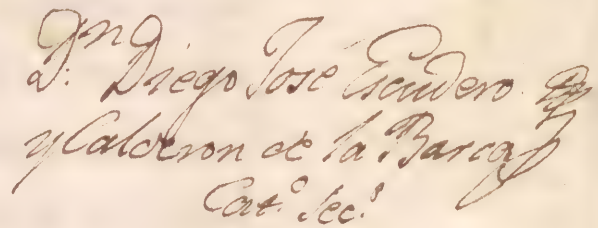 Dn. Diego José Escudero
y Calderon de la Barca
Cat.º Sec.º